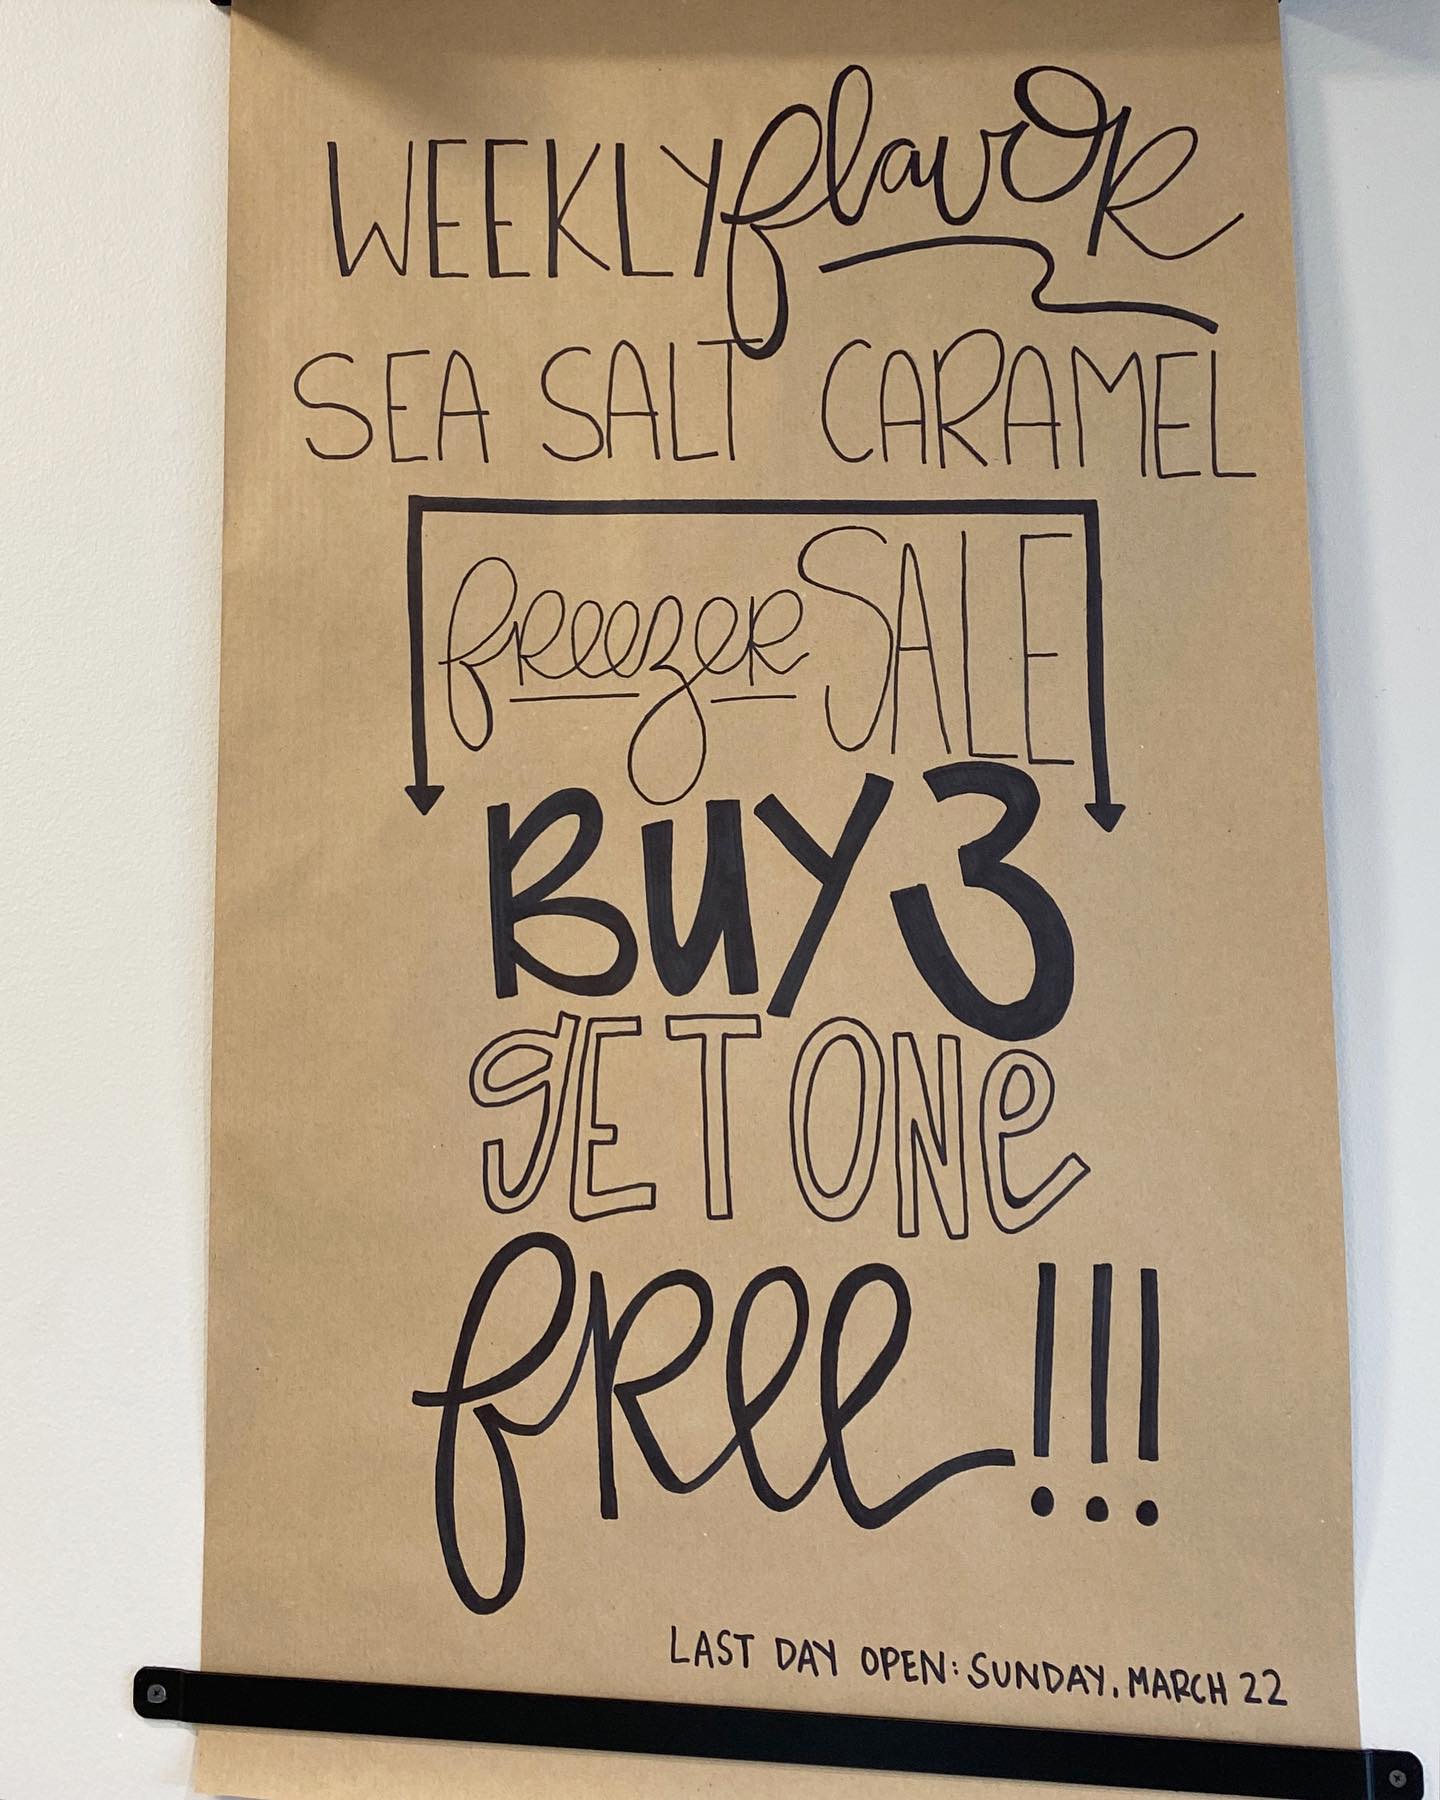 WEEKLY flavOR
SEA SALT CARAMEL
fReezeR SALE
BUY 3
gET ONe
fRee!!!
LAST DAY OPEN: SUNDAY, MARCH 22